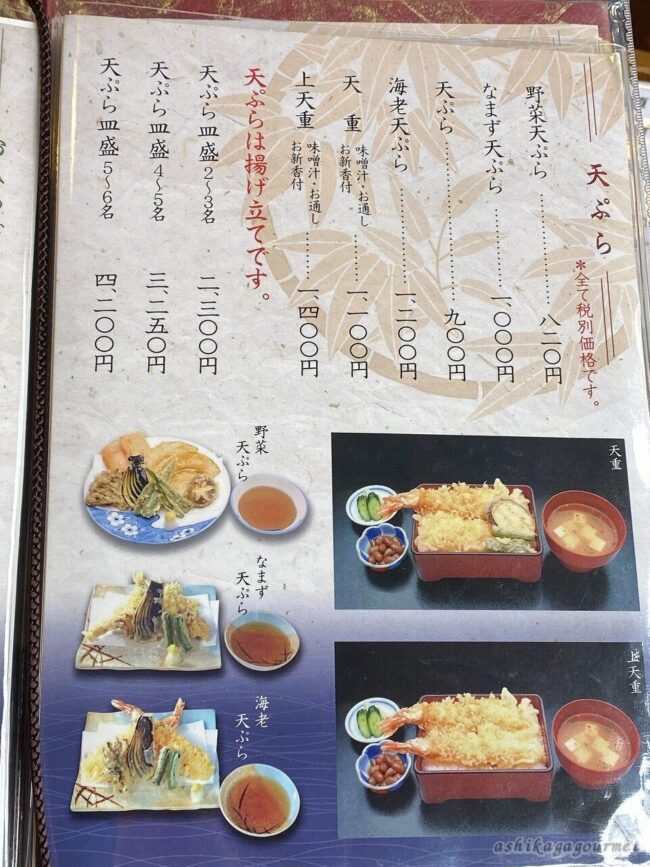 天ぷら
＊全て税別価格です。
野菜天ぷら……………八二〇円
なまず天ぷら……………一、〇〇〇円
天ぷら……………九〇〇円
海老天ぷら……………一、二〇〇円
天重 味噌汁・お通し
お新香付……………一、一〇〇円
上天重 味噌汁・お通し
お新香付……………一、四〇〇円
天ぷらは揚げ立てです。
天ぷら皿盛 2〜3名 二、三〇〇円
天ぷら皿盛 4〜5名 三、二五〇円
天ぷら皿盛 5〜6名 四、二〇〇円
天重
野菜
天ぷら
なまず
天ぷら
上天重
海老
天ぷら
ashikagagourmet